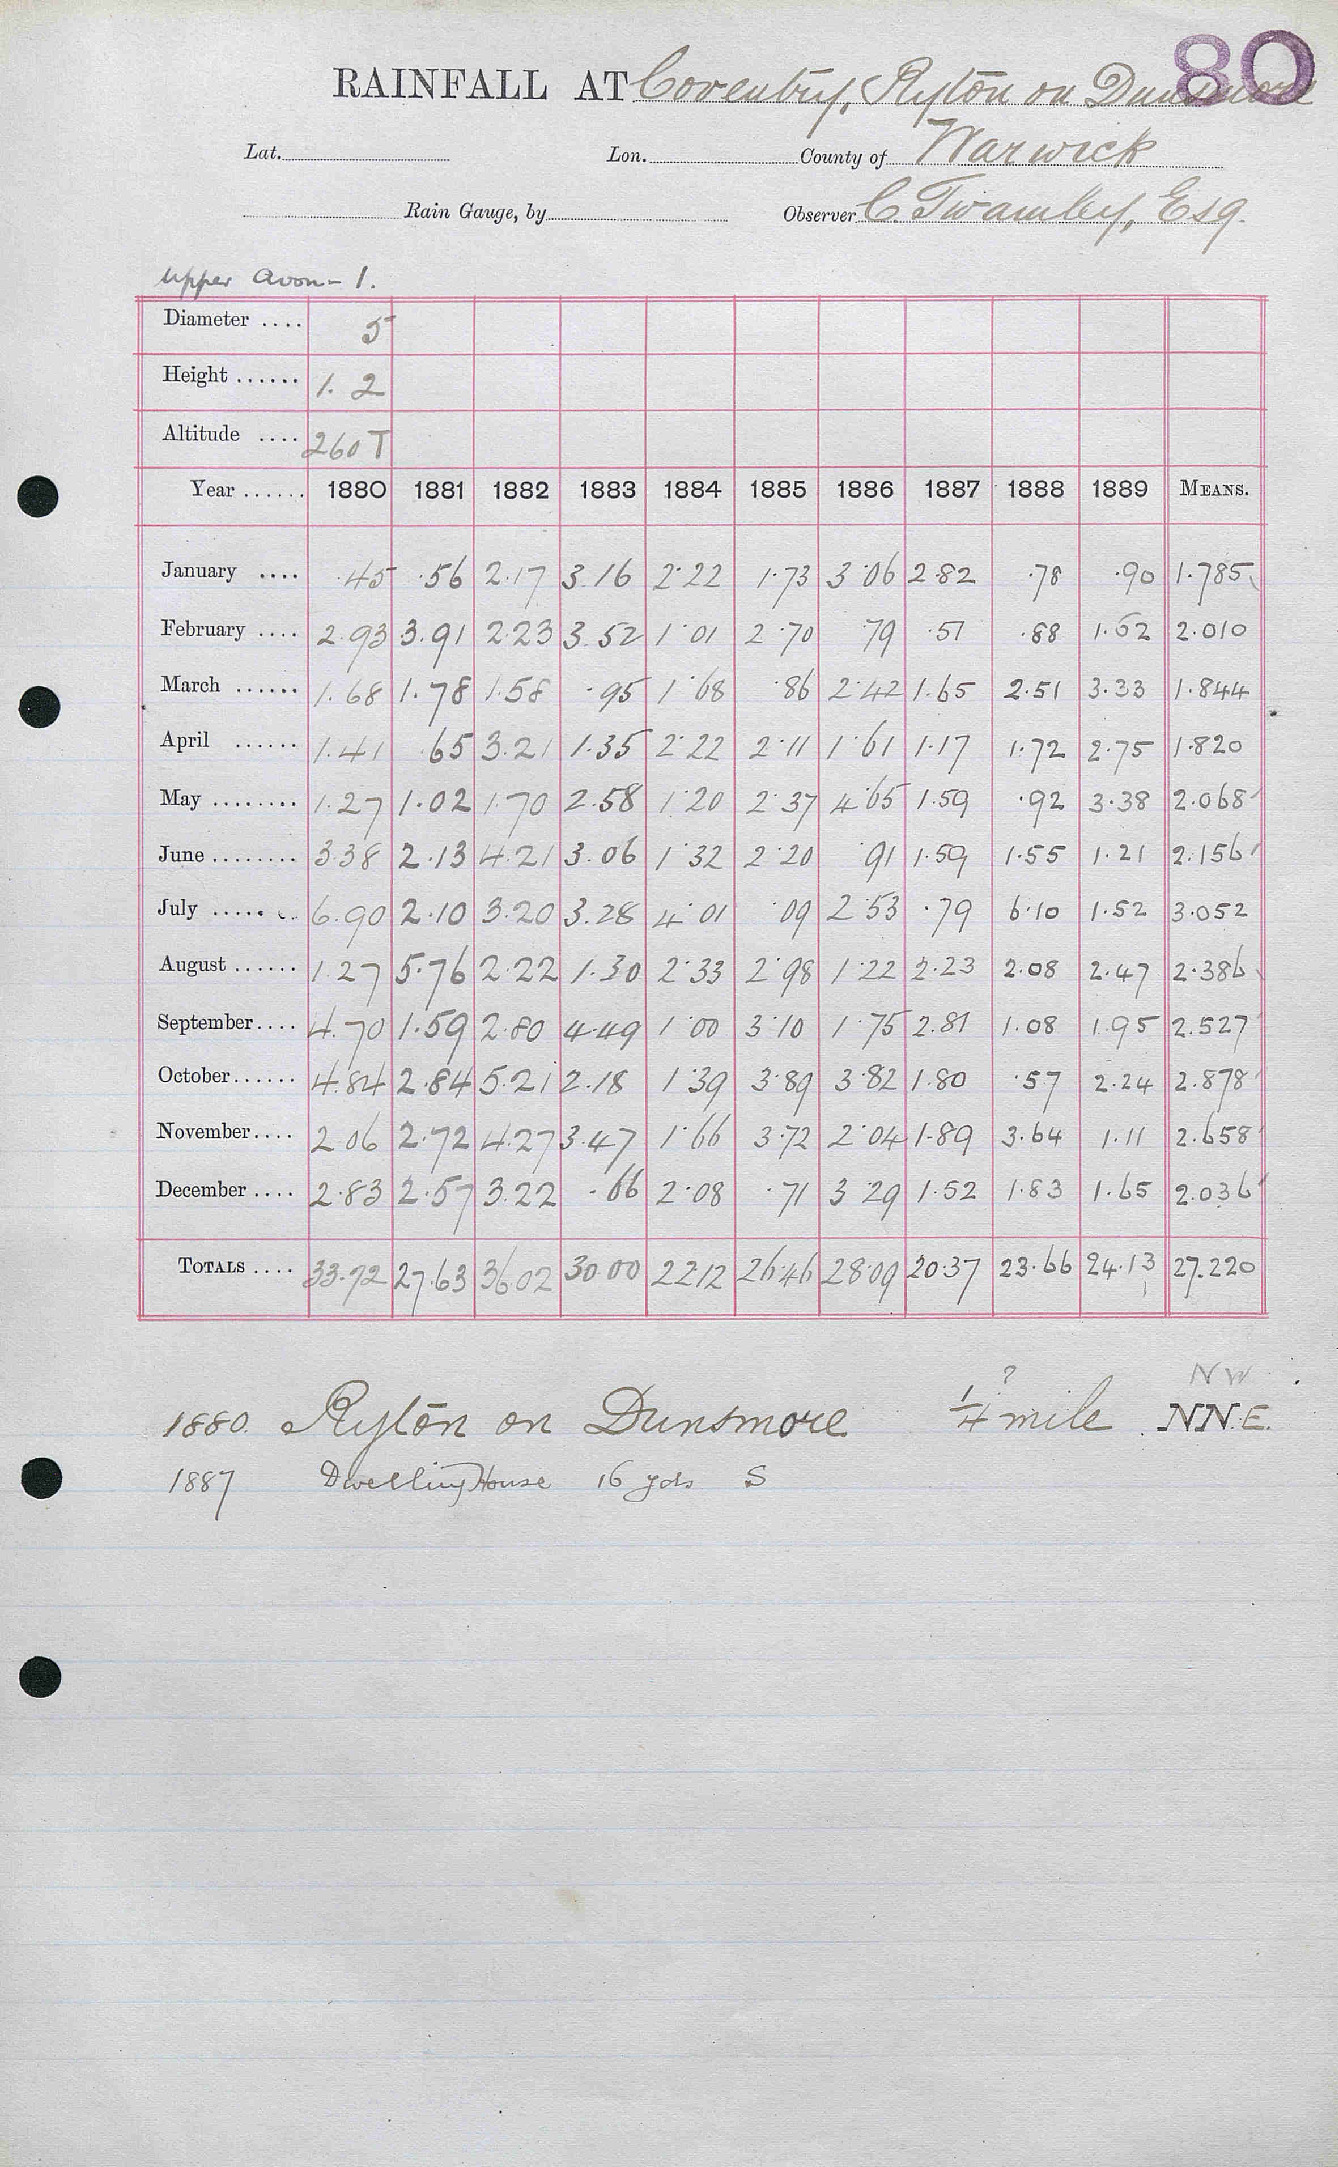 80
RAINFALL AT Coventry, Ryton on Dunsmore
Lat. Lon. County of Warwick
Rain Gauge, by Observer C. Twamley, Esq.
Upper Avon - 1.
Diameter .... 5
Height ...... 1. 2
Altitude .... 260 T
Year ...... 1880 1881 1882 1883 1884 1885 1886 1887 1888 1889 MEANS.
January .... .45 .56 2.17 3.16 2.22 1.73 3.06 2.82 .78 .90 1.785
February .... 2.93 3.91 2.23 3.52 1.01 2.70 .79 .51 .88 1.62 2.010
March ...... 1.68 1.78 1.58 .95 1.68 .86 2.42 1.65 2.51 3.33 1.844
April ...... 1.41 .65 3.21 1.35 2.22 2.11 1.61 1.17 1.72 2.75 1.820
May ........ 1.27 1.02 1.70 2.58 1.20 2.37 4.65 1.59 .92 3.38 2.068
June ........ 3.38 2.13 4.21 3.06 1.32 2.20 .91 1.59 1.55 1.21 2.156
July ...... 6.90 2.10 3.20 3.28 4.01 .09 2.53 .79 6.10 1.52 3.052
August ...... 1.27 5.76 2.22 1.30 2.33 2.98 1.22 2.23 2.08 2.47 2.386
September .... 4.70 1.59 2.80 4.49 1.00 3.10 1.75 2.81 1.08 1.95 2.527
October ...... 4.84 2.84 5.21 2.18 1.39 3.89 3.82 1.80 .57 2.24 2.878
November .... 2.06 2.72 4.27 3.47 1.66 3.72 2.04 1.89 3.64 1.11 2.658
December .... 2.83 2.57 3.22 .66 2.08 .71 3.29 1.52 1.83 1.65 2.036
TOTALS .... 33.72 27.63 36.02 30.00 22.12 26.46 28.09 20.37 23.66 24.13 27.220
? NW
1880. Ryton on Dunsmore 1/4 mile NN.E.
1887 Dwelling House 16 yds S